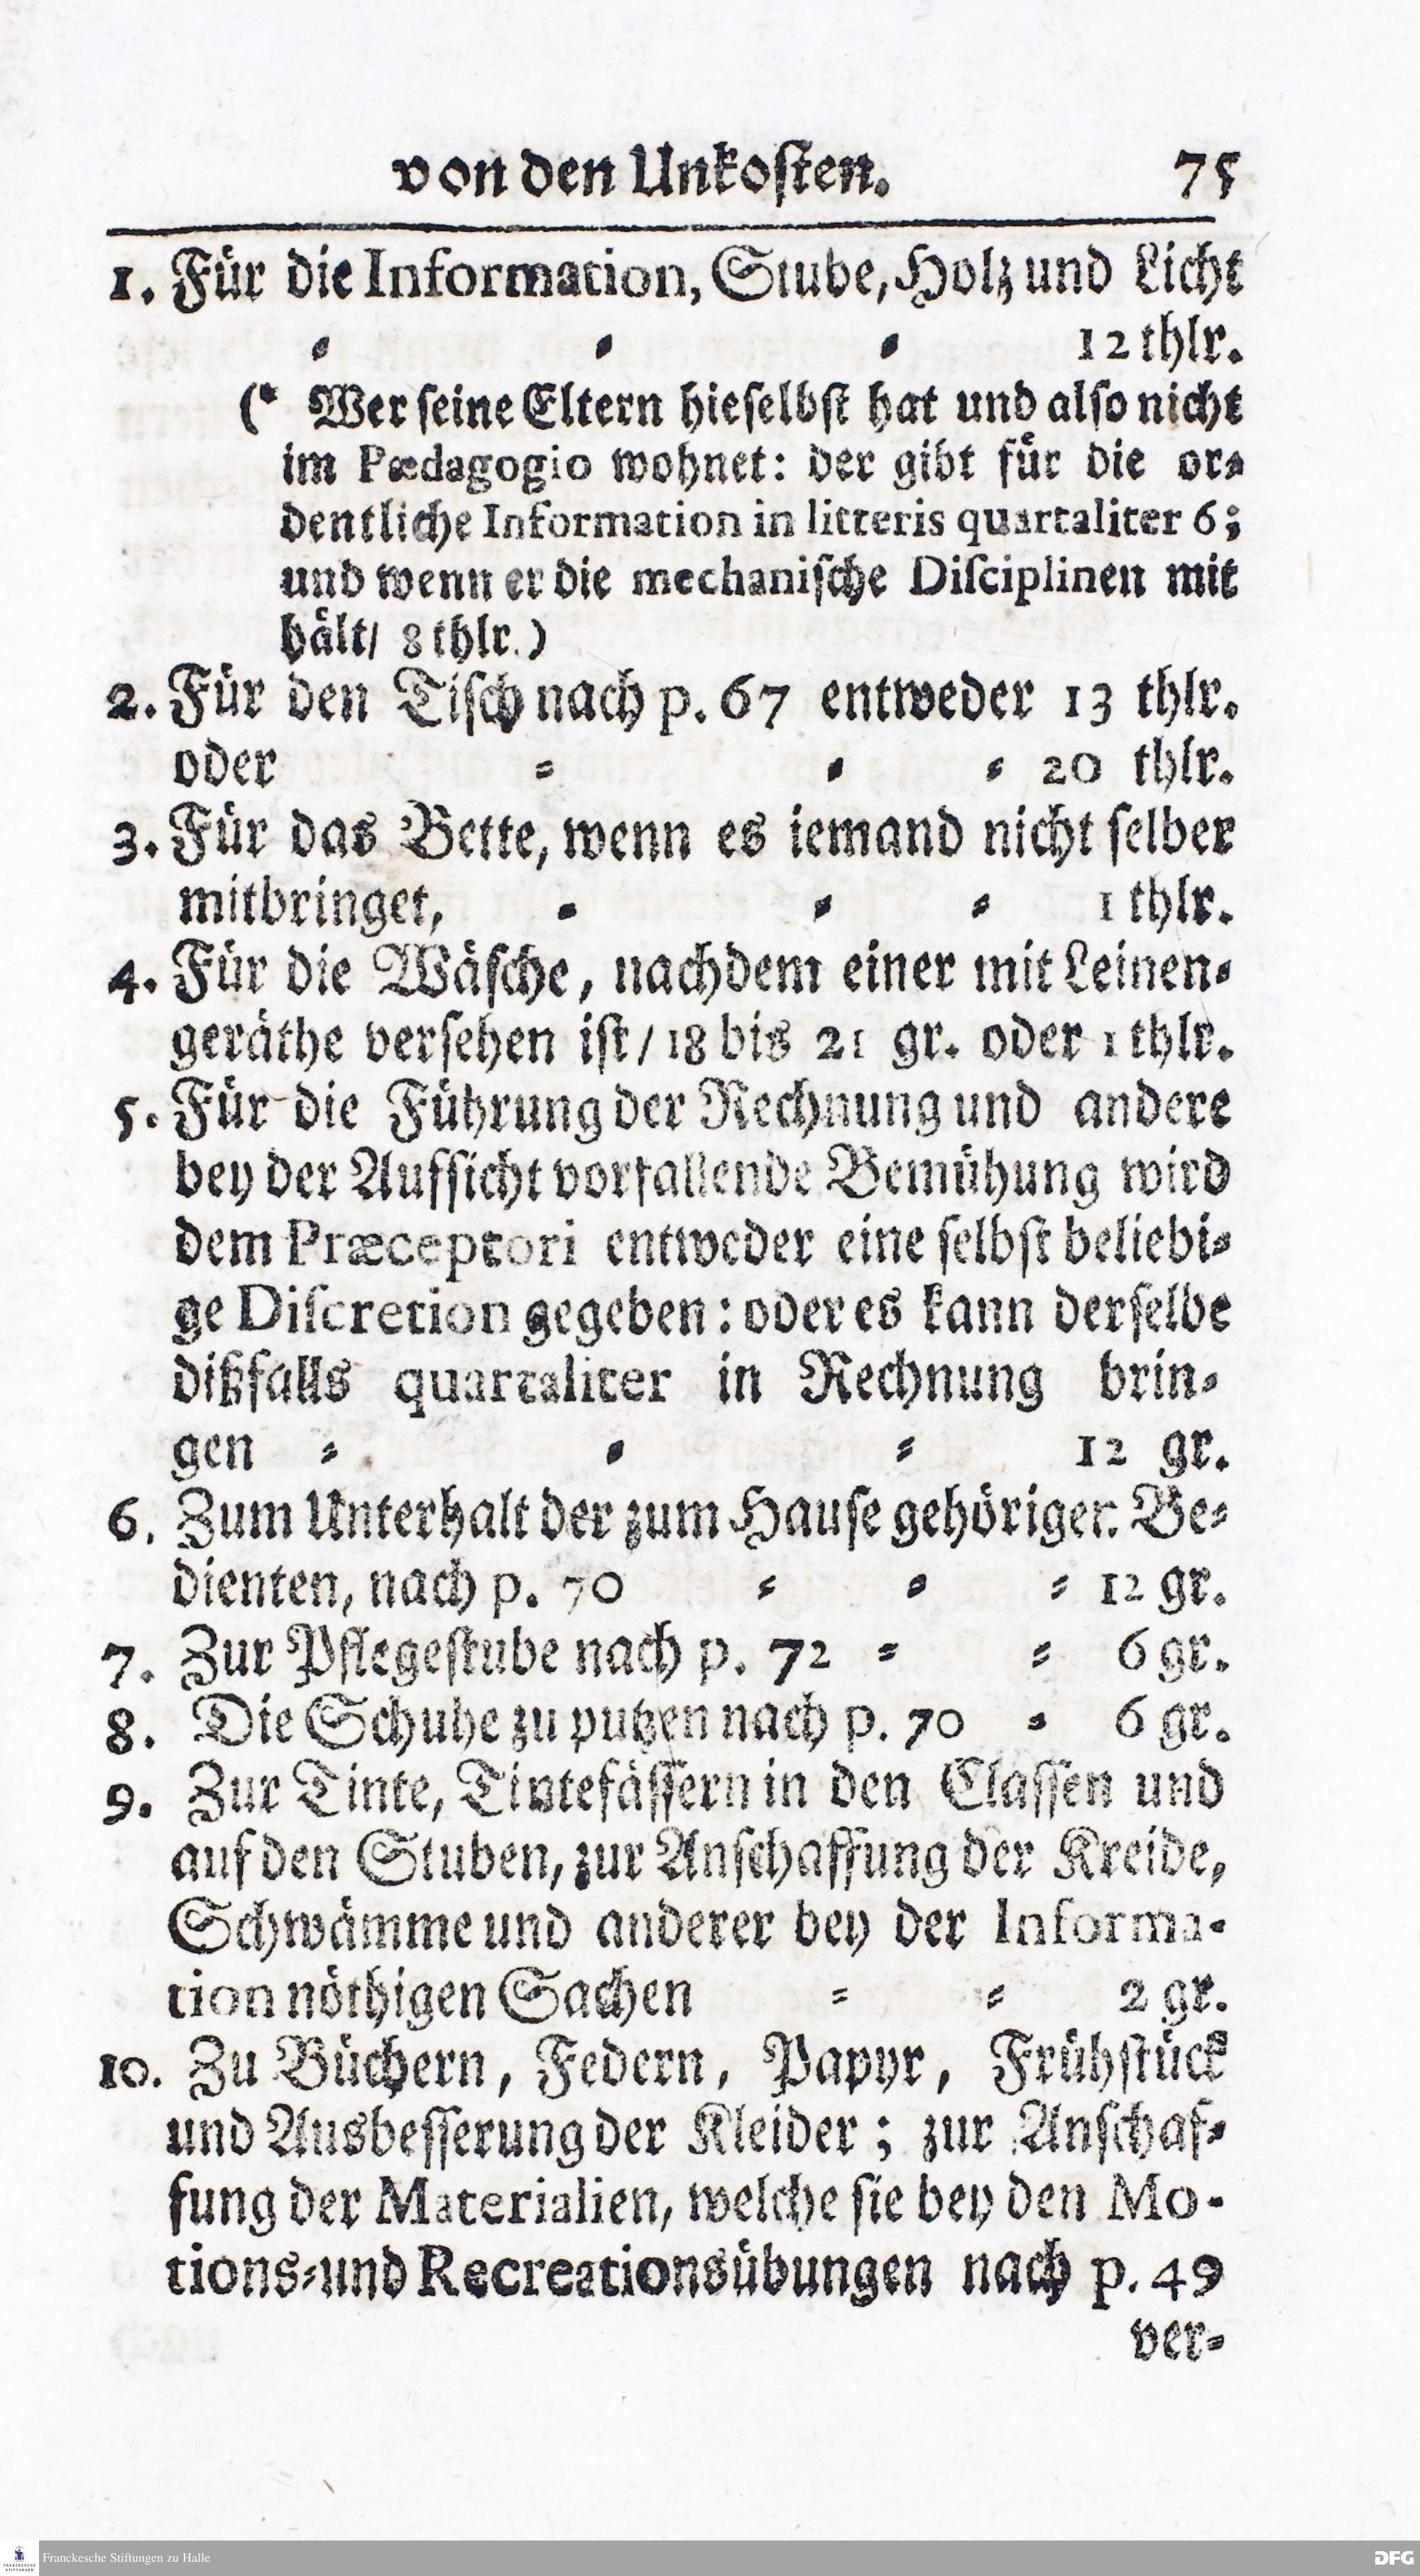 von den Unkosten. 75
1. Für die Information, Stube, Holz und Licht
⸗ ⸗ ⸗ 12 thlr.
(* Wer seine Eltern hieselbst hat und also nicht
im Pædagogio wohnet: der gibt für die or⸗
dentliche Information in litteris quartaliter 6;
und wenn er die mechanische Disciplinen mit
hält/ 8 thlr.)
2. Für den Tisch nach p. 67 entweder 13 thlr.
oder ⸗ ⸗ ⸗ 20 thlr.
3. Für das Bette, wenn es iemand nicht selber
mitbringet, ⸗ ⸗ ⸗ 1 thlr.
4. Für die Wäsche, nachdem einer mit Leinen⸗
geräthe versehen ist/ 18 bis 21 gr. oder 1 thlr.
5. Für die Führung der Rechnung und andere
bey der Aufsicht vorfallende Bemühung wird
dem Præceptori entweder eine selbst beliebi⸗
ge Discretion gegeben: oder es kann derselbe
dißfalls quartaliter in Rechnung brin⸗
gen ⸗ ⸗ ⸗ 12 gr.
6. Zum Unterhalt der zum Hause gehörigen Be⸗
dienten, nach p. 70 ⸗ ⸗ ⸗ 12 gr.
7. Zur Pflegestube nach p. 72 ⸗ ⸗ 6 gr.
8. Die Schuhe zu putzen nach p. 70 ⸗ 6 gr.
9. Zur Tinte, Tintefässern in den Classen und
auf den Stuben, zur Anschaffung der Kreide,
Schwämme und anderer bey der Informa-
tion nöthigen Sachen ⸗ ⸗ 2 gr.
10. Zu Büchern, Federn, Papyr, Frühstück
und Ausbesserung der Kleider; zur Anschaf⸗
fung der Materialien, welche sie bey den Mo-
tions⸗und Recreationsübungen nach p. 49
ver⸗
Franckesche Stiftungen zu Halle
DFG